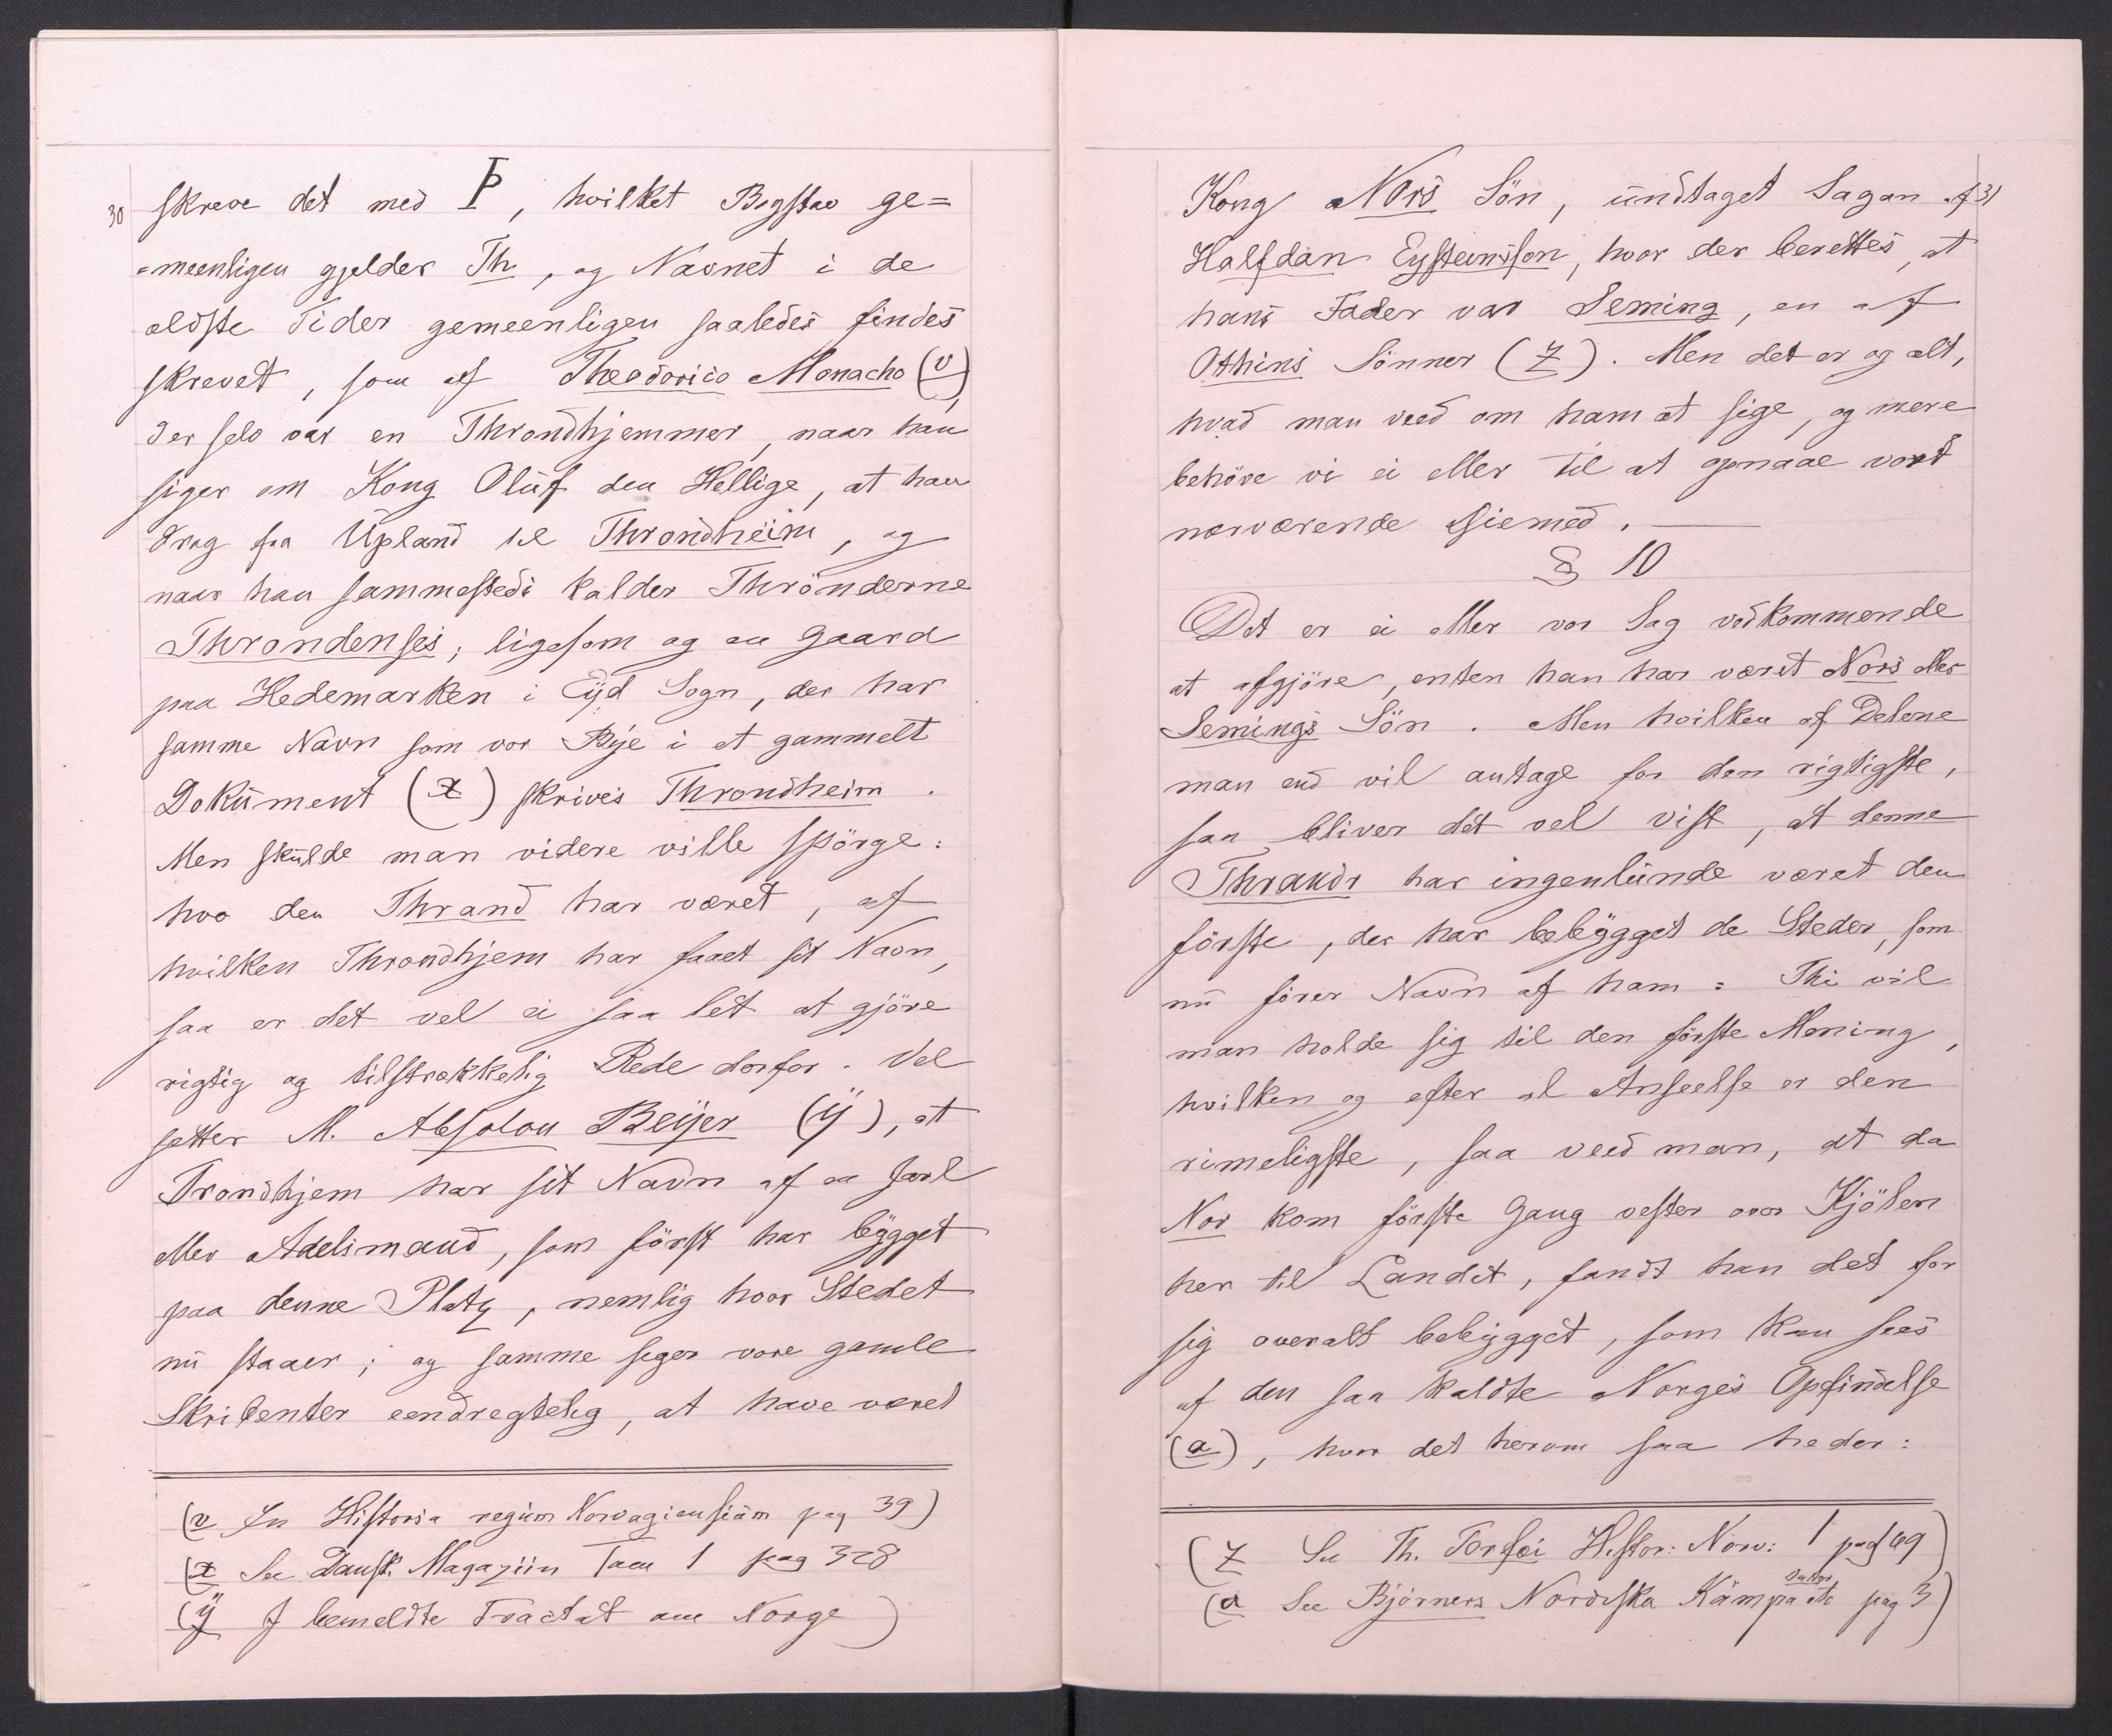 30
skreve det med Þ, hvilket Bogstav ge=
=meenligen gjelder Th, og Navnet i de
ældste Tider gemeenligen saaledes findes
skrevet, som af Theodorico Monacho (v),
der selv var en Throndhjemmer, naar han
siger om Kong Oluf den Hellige, at han
drog fra Upland til Throndheim, og
naar han sammesteds kalder Thrönderne
Throndenses; ligesom og en Gaard
paa Hedemarken i Eyd Sogn, der har
samme Navn som vor Bye i et gammelt
Dokument (x) skrives Throndheim.
Men skulde man videre ville spörge:
hvo den Thrand har været, af
hvilken Throndhjem har faaet sit Navn,
saa er det vel ei saa let at gjöre
rigtig og tilstrækkelig Rede derfor. Vel
setter M. Absolon Beyer (y), at
Trondhjem har sit Navn af en Jarl
eller Adelsmand, som först har bygget
paa denne Platz, nemlig hvor Stedet
nu staaer; og samme siger vore gamle
Skribenter eendregtelig, at have været
(v In Historia regum Norvagiensium pag 39)
(x See Dansk. Magaziin Tom 1 pag 328
(y J bemeldte Tractat om Norge)
31
Kong Nors Sön, undtaget Sagan af
Halfdan Eysteinsson, hvor der berettes, at
hans Fader var Seming, en af
Othins Sönner (z). Men det er og alt,
hvad man veed om ham at sige, og mere
behöve vi ei eller til at opnaae vort
nærværende Øiemed. —
§ 10
Det er ei eller vor Sag vedkommende
at afgjöre, enten han har været Nors eller
Semings Sön. Men hvilken af Delene
man end vil antage for den rigtigste,
saa bliver det vel vist, at denne
Thrandr har ingenlunde været den
förste, der har bebygget de Steder, som
nu förer Navn af ham: Thi vil
man holde sig til den förste Mening,
hvilken og efter al Anseelse er den
rimeligste, saa veed man, at da
Nor kom förste Gang vester over Kjölen
her til Landet, fandt han det for
sig overalt bebygget, som kan sees
af den saa kaldte Norges Opfindelse
(a), hvor det herom saa heder:
(z See Th. Torfæi Histor: Norv: 1 pag 149)
(a See Björners Nordiska Kämpa Dater etc pag 3)